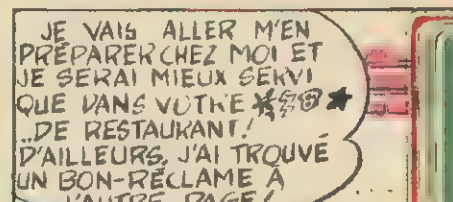 JE VAIS ALLER M'EN
PRÉPARER CHEZ MOI ET
JE SERAI MIEUX SERVI
QUE DANS VOTRE
..DE RESTAURANT!
D'AILLEURS, J'AI TROUVÉ
UN BON-RÉCLAME À
L'AUTRE PAGE!